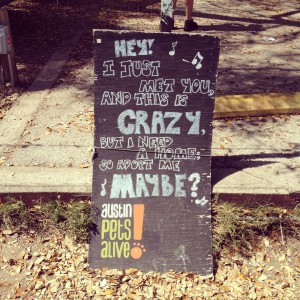 HEY!
I JUST
MET YOU,
AND THIS IS
CRAZY,
BUT I NEED
A HOME;
SO ADOPT ME
MAYBE?
austin
pets
alive!